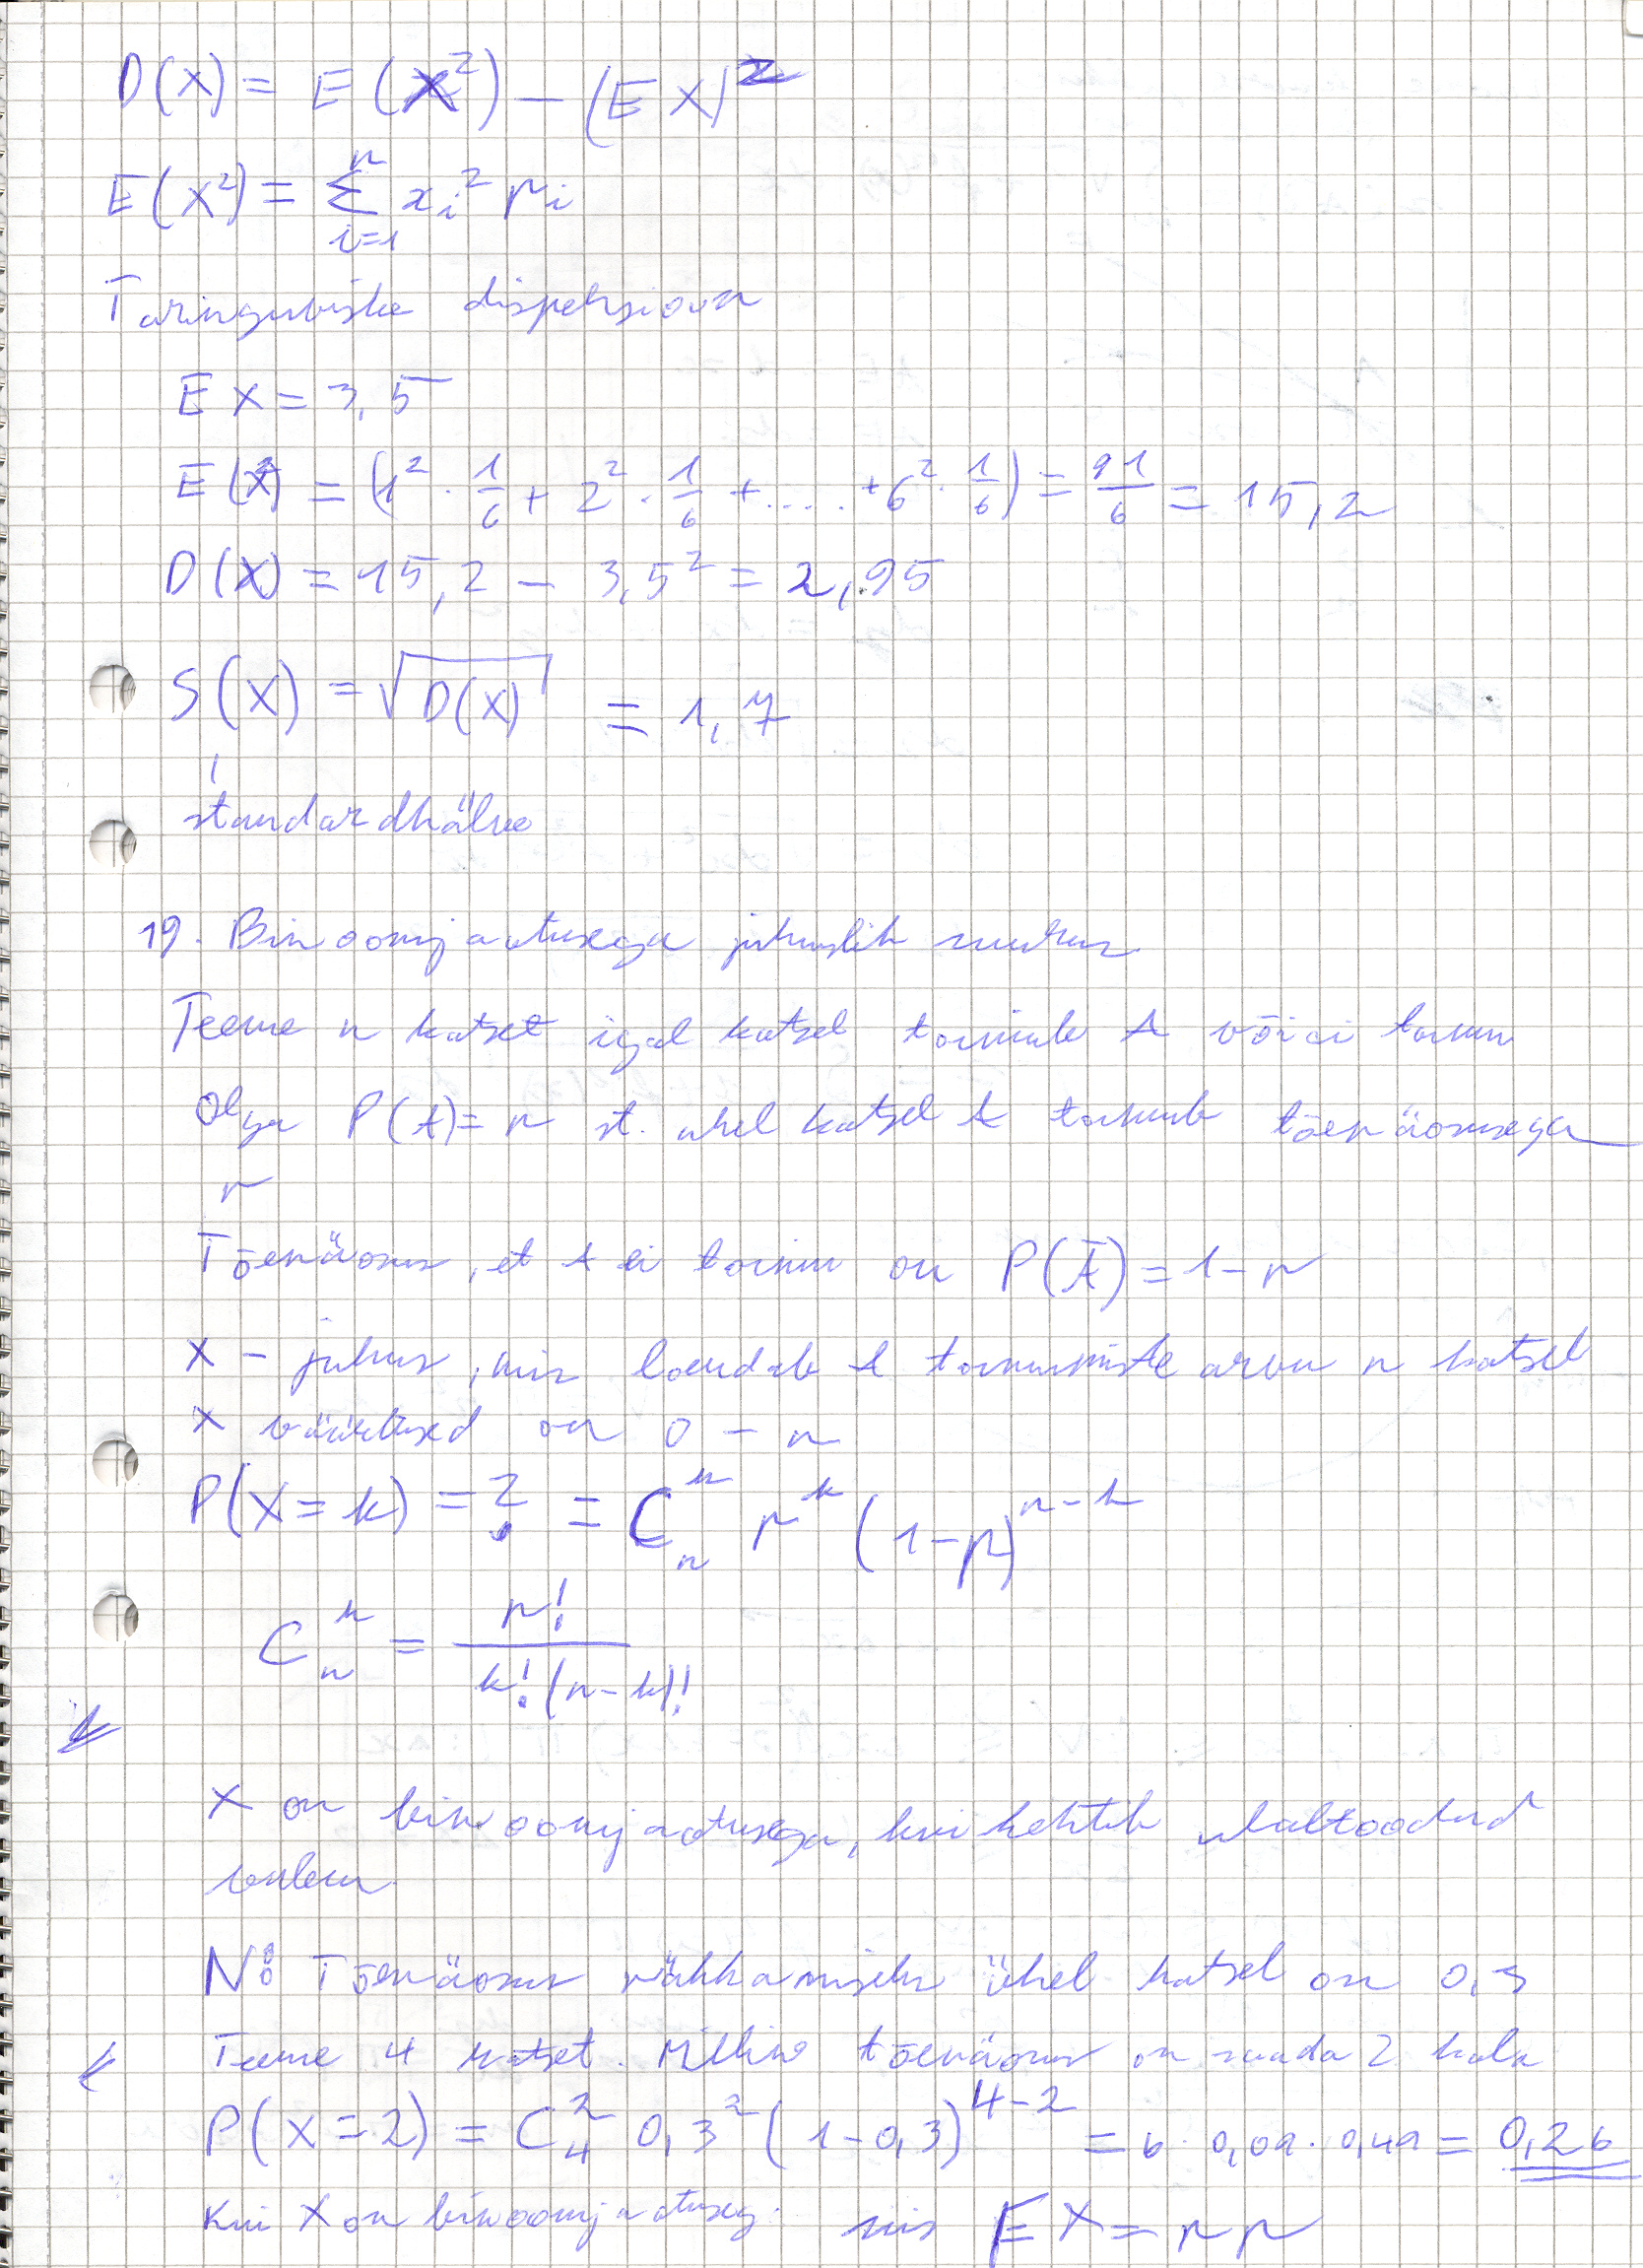 D(X) = E(X²) – (EX)²
E(X²) = n∑i=1 xi² pi
Täringuviske dispersioon
EX = 3,5
E(X²) = (1² · 1/6 + 2² · 1/6 + .... + 6² · 1/6) = 91/6 = 15,2
D(X) = 15,2 – 3,5² = 2,95
S(X) = √D(X) = 1,7
standardhälve
19. Binoomjaotusega juhuslik suurus
Teeme n katset igal katsel toimub A või ei toimu
Olgu P(A) = p st. ühel katsel A toimub tõenäosusega
p
Tõenäosus, et A ei toimu on P(Ā) = 1–p
X – juhus, mis loendab A toimumiste arvu n katsel
X väärtused on 0 – n
P(X=k) = ? = Cₙᵏ pᵏ (1–p)ⁿ⁻ᵏ
Cₙᵏ = n! / k!(n–k)!
X on binoomjaotusega, kui kehtib ülaltoodud
valem.
N: Tõenäosus ühel katsel on 0,3
Teeme 4 katset. Milline tõenäosus on saada 2 kala
P(X=2) = C₄² 0,3² (1–0,3)⁴⁻² = 6 · 0,09 · 0,49 = 0,26
Kui X on binoomjaotuseg. siis EX = np